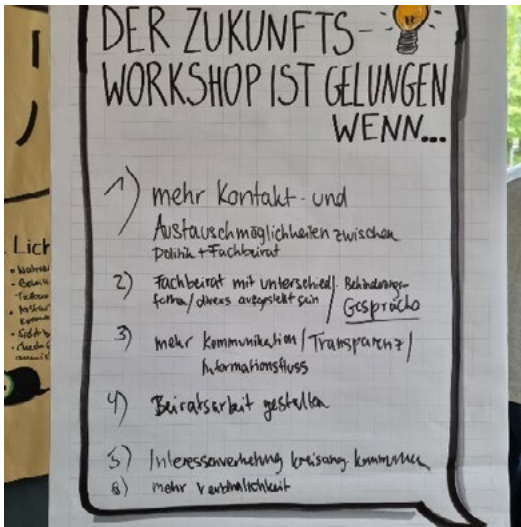 DER ZUKUNFTS-
WORKSHOP IST GELUNGEN
WENN...
1) mehr Kontakt- und
Austauschmöglichkeiten zwischen
Politik + Fachbeirat
2) Fachbeirat mit unterschiedl. Behinderungs-
formen/divers aufgestellt sein / Gespräche
3) mehr Kommunikation/Transparenz/
Informationsfluss
4) Beiratsarbeit gestalten
5) Interessenvertretung kreisang. Kommunen
6) mehr Verbindlichkeit
Lich